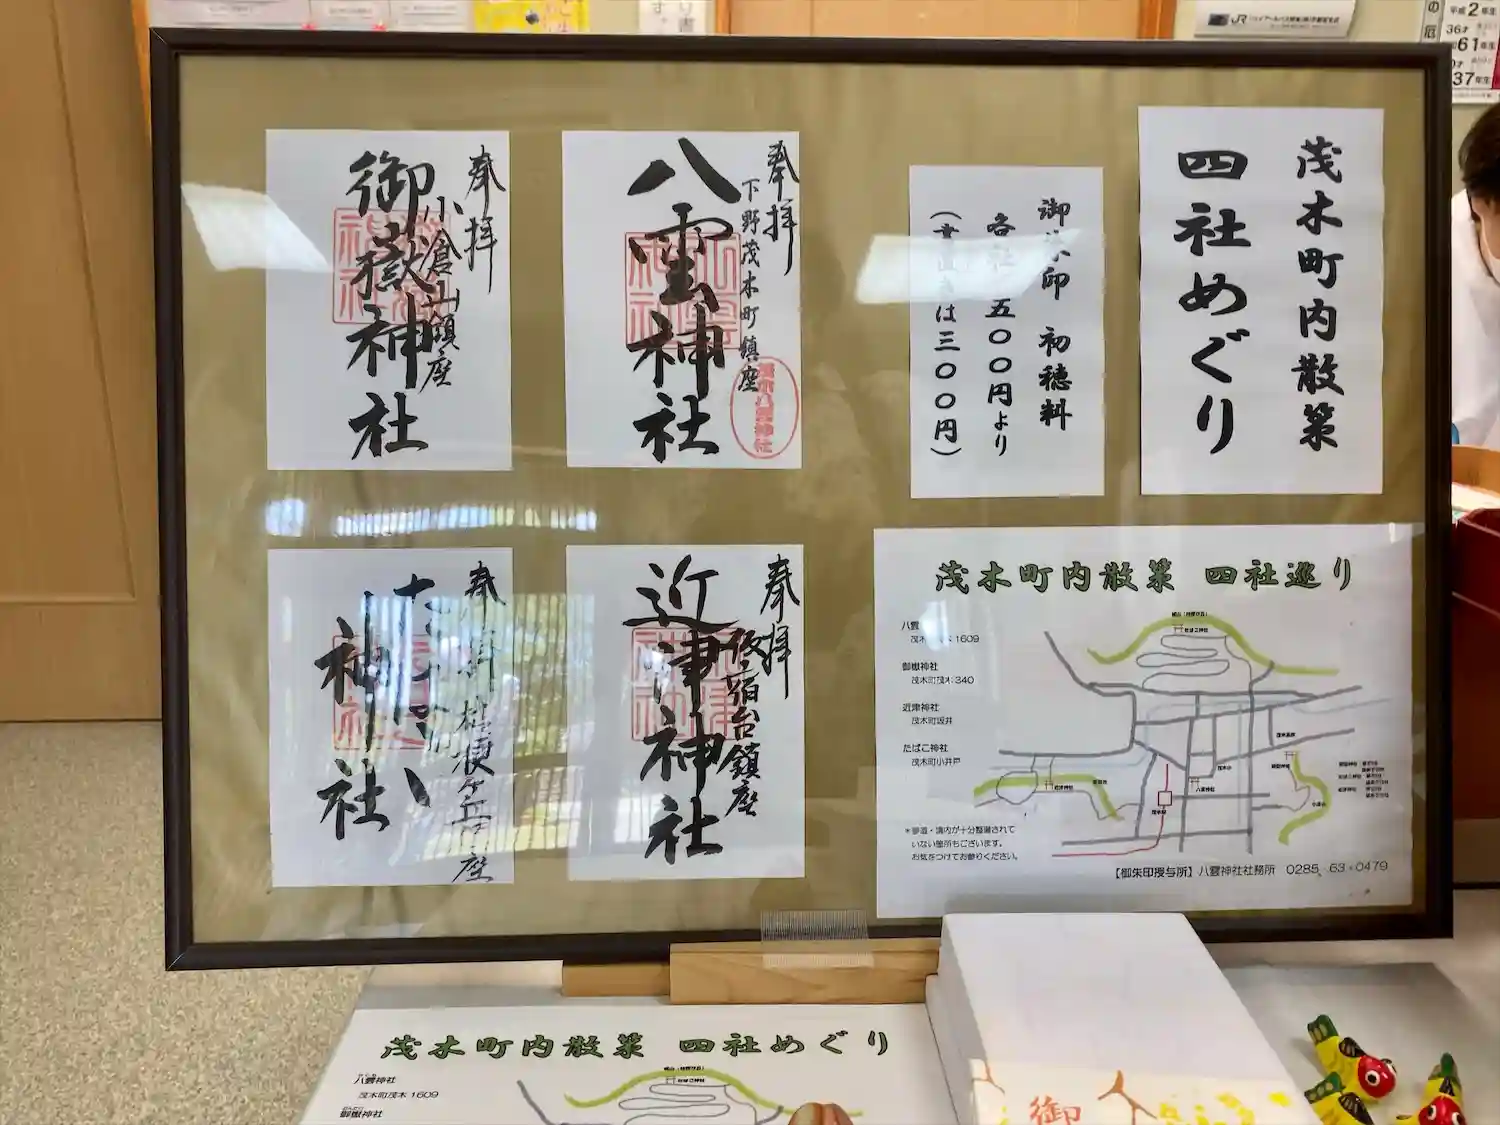 茂木町内散策
四社めぐり
御朱印 初穂料
各社 五〇〇円より
は三〇〇円)
奉拝
下野茂木町鎮座
八雲神社
茂木八雲神社
奉拝
小倉山鎮座
御嶽神社
奉拝
仮宿台鎮座
近津神社
奉拝
桔梗ケ丘鎮座
たばこ
神社
茂木町内散策 四社巡り
八雲
茂木 1609
御嶽神社
茂木町茂木340
近津神社
茂木町坂井
たばこ神社
茂木町小井戸
*参道・境内が十分整備されて
いない箇所もございます。
お気をつけてお参りください。
【御朱印授与所】八雲神社社務所 0285-63-0479
茂木町内散策 四社めぐり
八雲神社
茂木町茂木1609
御嶽神社
御
JR
平成2年生
36才
61年生
37年生